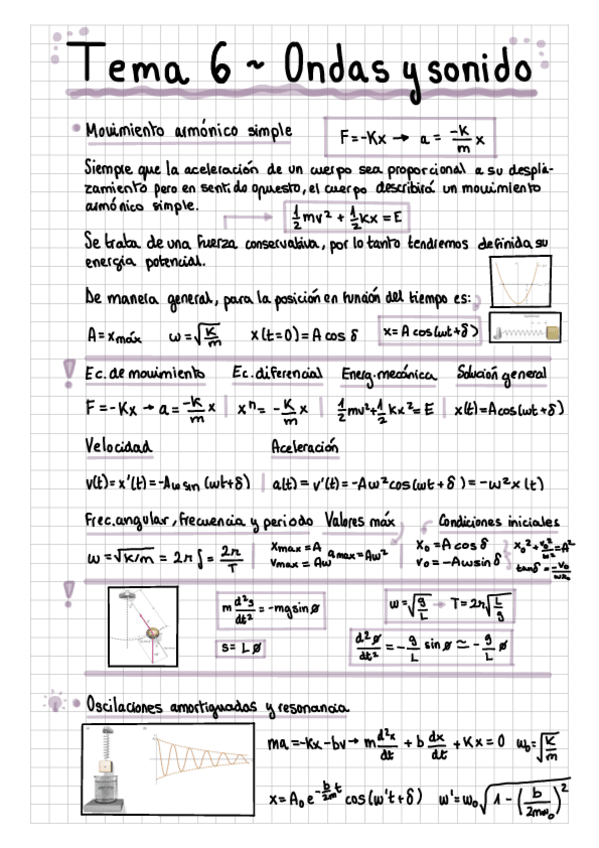 Tema 6 ~ Ondas y sonido
Movimiento armónico simple
F=-Kx → a = -K/m x
Siempre que la aceleración de un cuerpo sea proporcional a su despla-
zamiento pero en sentido opuesto, el cuerpo describirá un movimiento
armónico simple.
1/2 mv² + 1/2 kx = E
Se trata de una fuerza conservativa, por lo tanto tendremos definida su
energía potencial.
De manera general, para la posición en función del tiempo es:
A = xmáx ω = √K/m x(t=0) = A cos δ x = A cos(ωt+δ)
! Ec. de movimiento Ec. diferencial Energ. mecánica Solución general
F=-Kx → a = -K/m x | xⁿ = -K/m x | 1/2 mv² + 1/2 kx² = E | x(t)=A cos(ωt+δ)
Velocidad Aceleración
v(t) = x'(t) = -Aω sin (ωt+δ) | a(t) = v'(t) = -Aω² cos(ωt+δ) = -ω²x(t)
Frec. angular, frecuencia y periodo Valores máx Condiciones iniciales
ω = √K/m = 2π f = 2π/T | xmax = A vmax = Aω amax = Aω² | x₀ = A cos δ v₀ = -Aω sin δ x₀² + v₀²/ω² = A² tan δ = -v₀/ωx₀
! m d²s/dt² = -mg sin ø ω = √g/L → T = 2π√L/g
s = Lø d²ø/dt² = -g/L sin ø ≃ -g/L ø
Oscilaciones amortiguadas y resonancia
ma = -kx - bv → m d²x/dt + b dx/dt + Kx = 0 ω₀ = √K/m
x = A₀ e^(-b/2m t) cos (ω't+δ) ω' = ω₀ √1 - (b/2mω₀)²